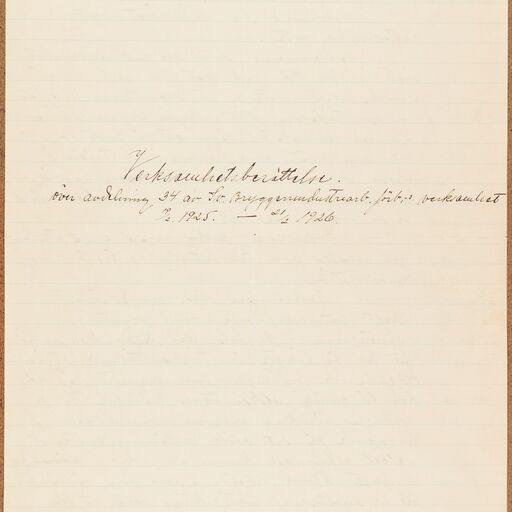 Verksamhetsberättelse.
över avdelning 34 av Sv. Bryggeriindustriarb. förb:s verksamhet
1925. — 1926.